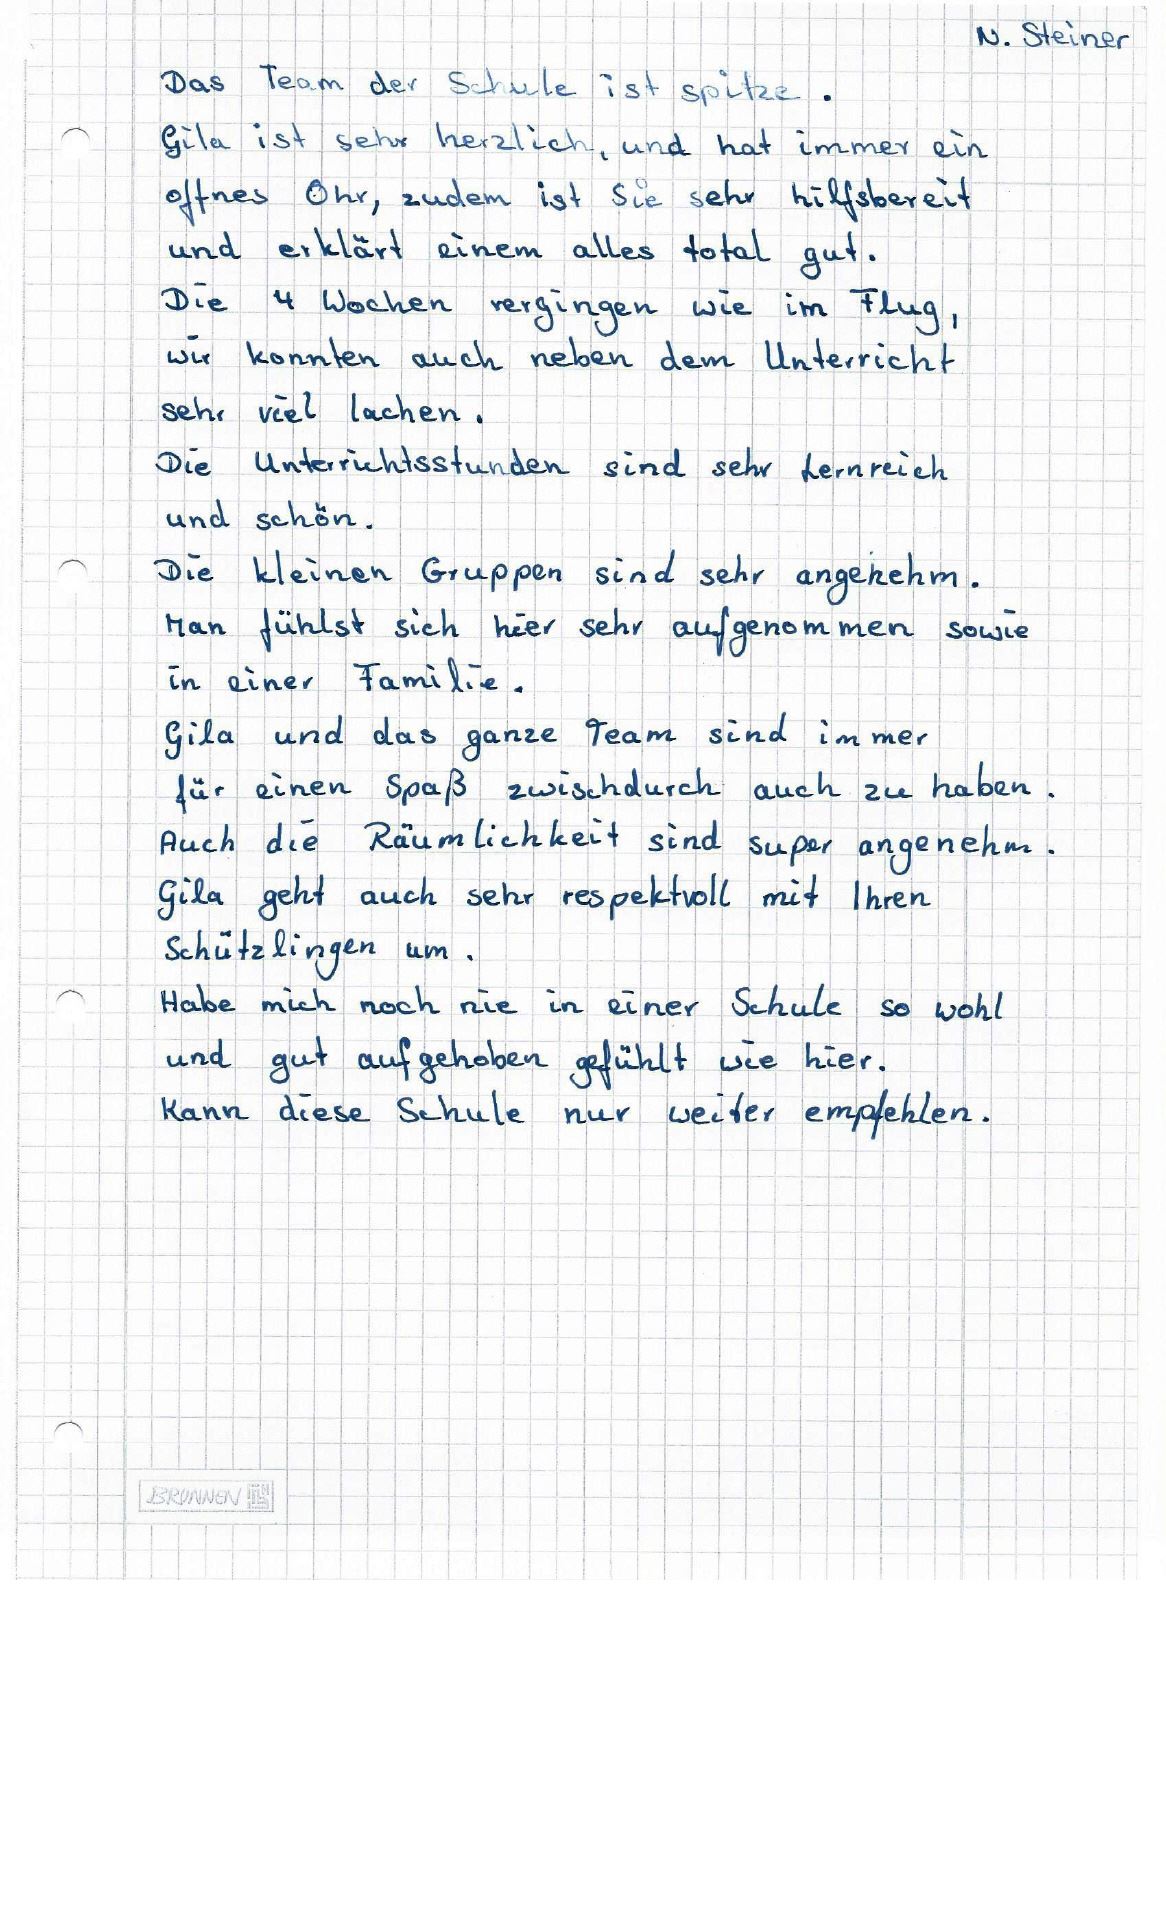 N. Steiner
Das Team der Schule ist spitze.
Gila ist sehr herzlich, und hat immer ein
offnes Ohr, zudem ist Sie sehr hilfsbereit
und erklärt einem alles total gut.
Die 4 Wochen vergingen wie im Flug,
wir konnten auch neben dem Unterricht
sehr viel lachen.
Die Unterrichtsstunden sind sehr Lernreich
und schön.
Die kleinen Gruppen sind sehr angenehm.
Man fühlst sich hier sehr aufgenommen sowie
in einer Familie.
Gila und das ganze Team sind immer
für einen Spaß zwischdurch auch zu haben.
Auch die Räumlichkeit sind super angenehm.
Gila geht auch sehr respektvoll mit Ihren
Schützlingen um.
Habe mich noch nie in einer Schule so wohl
und gut aufgehoben gefühlt wie hier.
Kann diese Schule nur weiter empfehlen.
BRUNNEN